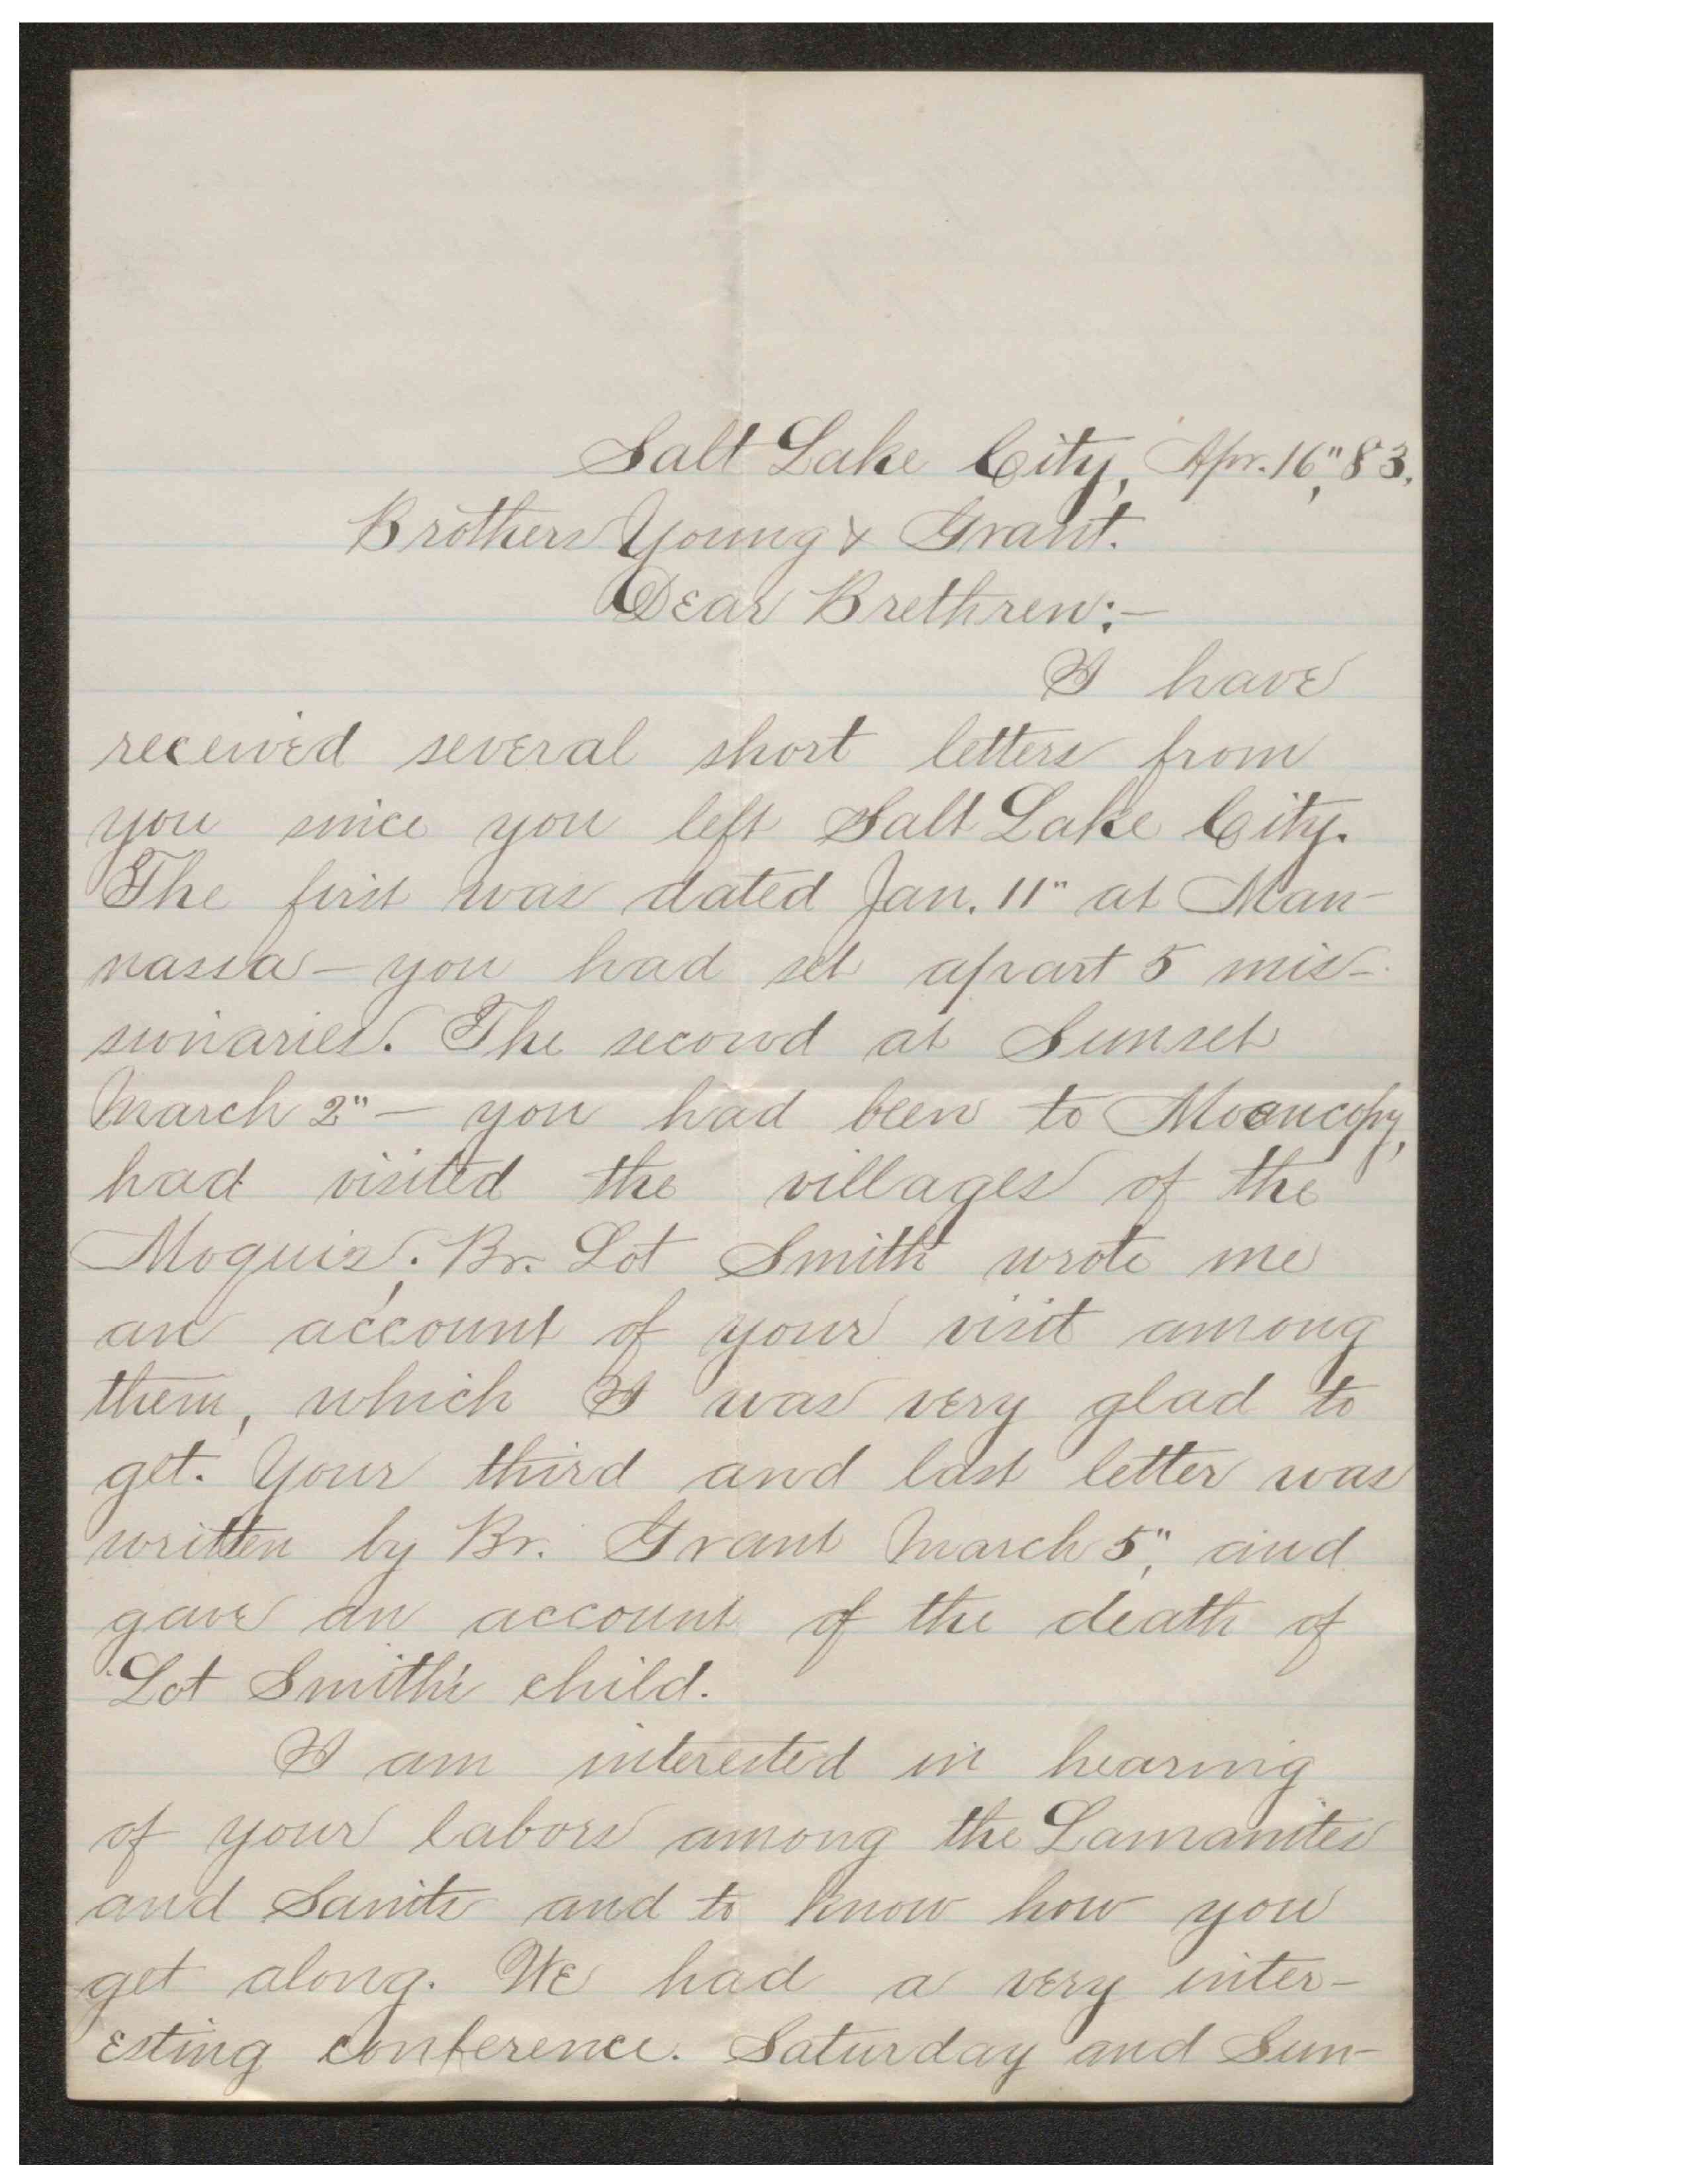 Salt Lake City, Apr. 16", 83.
Brothers Young & Grant.
Dear Brethren:—
I have
received several short letters from
you since you left Salt Lake City.
The first was dated Jan. 11" at Man-
nassa — you had set apart 5 mis-
sionaries. The second at Sunset
March 2" — you had been to Moencopy,
had visited the villages of the
Moquis; Br. Lot Smith wrote me
an account of your visit among
them, which I was very glad to
get. Your third and last letter was
written by Br. Grant March 5", and
gave an account of the death of
Lot Smith's child.
I am interested in hearing
of your labors among the Lamanites
and Saints and to know how you
get along. We had a very inter-
esting conference. Saturday and Sun-